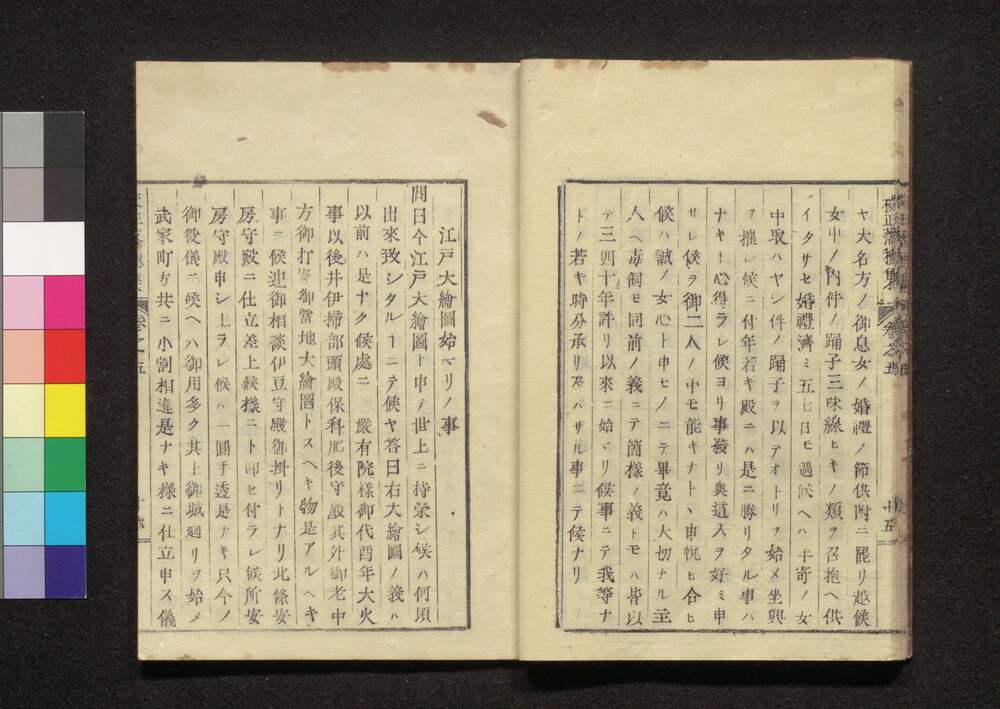 校正落穂集
ヤ大名方ノ御息女ノ婚禮ノ節供附ニ罷リ越候
女中ノ内件ノ踊子三味線ヒキノ類ヲ召抱ヘ供
イタサセ婚禮濟ミ五七日モ過候ヘハ年寄ノ女
中取ハヤシ件ノ踊子ヲ以テオトリヲ始メ坐興
ヲ催シ候ニ付年若キ殿ニハ是ニ勝リタル事ハ
ナキト心得ラレ候ヨリ事發リ奧這入ヲ好ミ申
サレ候ヲ御二人ノ中モ能キナトヽ申悅ヒ合ヒ
候ハ誠ノ女心ト申セノニテ畢竟ハ大切ナル主
人ヘ毒飼モ同前ノ義ニテ箇樣ノ義トモハ皆以
テ三四十年許リ以來ニ始マリ候事ニテ我等ナ
トノ若キ時分承リ及ハサル事ニテ候ナリ
江戸大繪圖始マリノ事
問曰今江戸大繪圖ト申テ世上ニ持榮シ候ハ何頃
出來致シタルヿニテ候ヤ答曰右大繪圖ノ義ハ
以前ハ是ナク候處ニ 嚴有院樣御代酉年大火
事以後井伊掃部頭殿保科肥後守殿其外御老中
方御打寄御當地大繪圖トスヘキ物是アルヘキ
事ニ候迚御相談伊豆守殿御掛リトナリ北條安
房守殿ニ仕立差上候樣ニト仰セ付ラレ候所安
房守殿申シ上ラレ候ハ一圓手透是ナキ只今ノ
御役儀ニ候ヘハ御用多ク其上御城廻リヲ始メ
武家町方共ニ小割相違是ナキ樣ニ仕立申ス儀